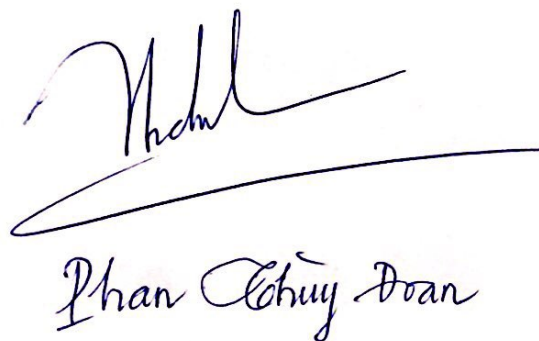 Phan Thùy Doan